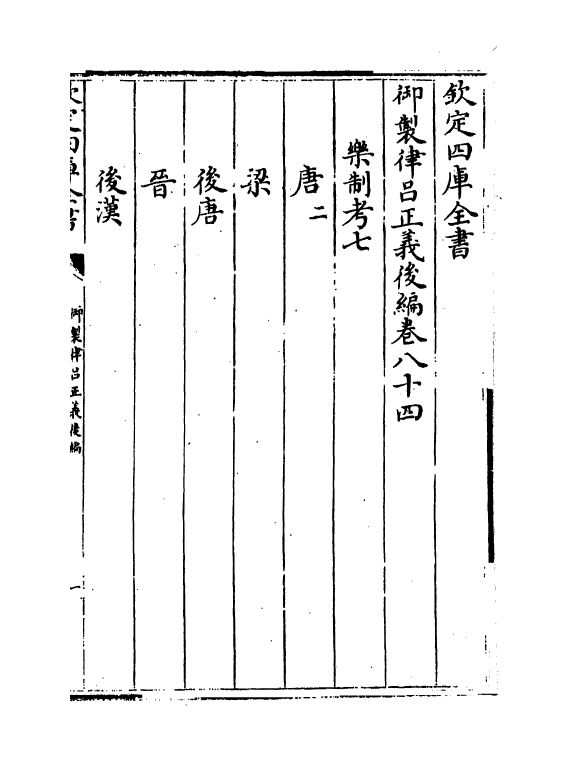 欽定四庫全書
御製律呂正義後編卷八十四
樂制考七
唐二
梁
後唐
晉
後漢
欽定四庫全書
御製律呂正義後編
一